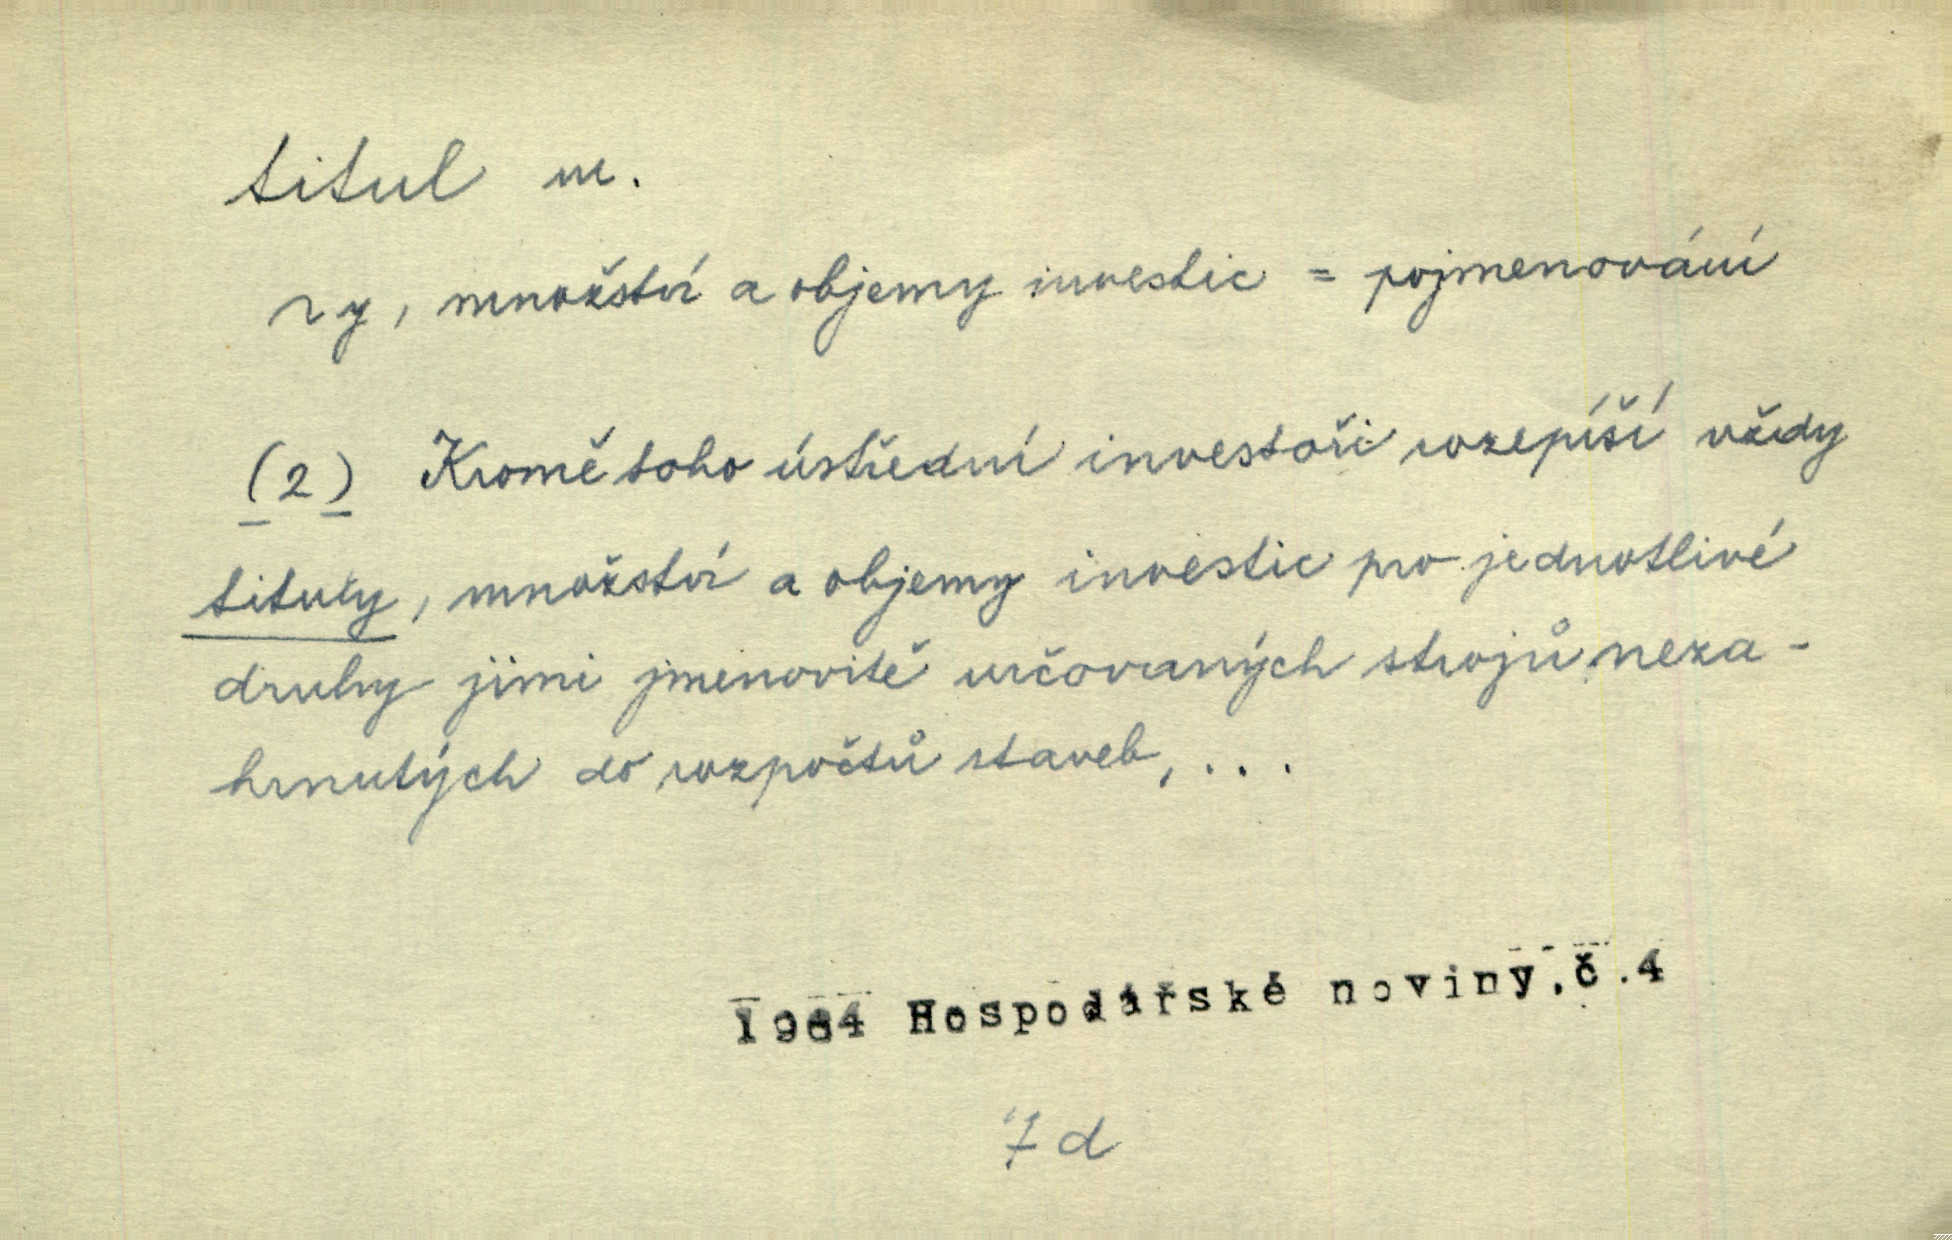 titul m.
~ y, množství a objemy investic = pojmenování
(2) Kromě toho ústřední investoři rozepíší vždy
tituly, množství a objemy investic pro jednotlivé
druhy jimi jmenovitě určovaných strojů neza-
hrnutých do rozpočtů staveb, ...
1964 Hospodářské noviny,č.4
7 d